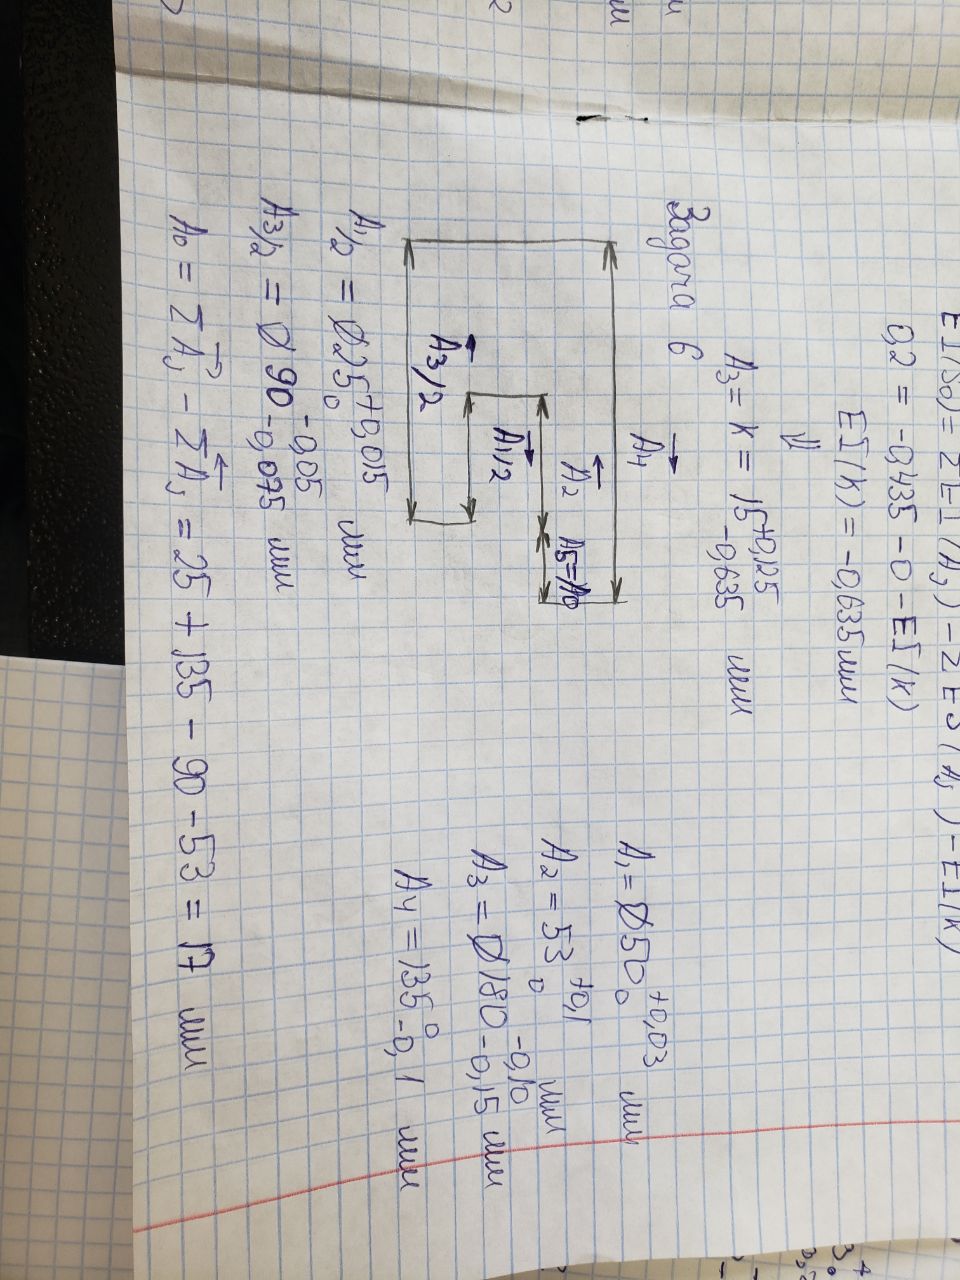 EI(S₀) = ΣEI(Aj) − ΣES(Aj) − EI(K)
0,2 = −0,435 − 0 − EI(K)
EI(K) = −0,635 мм
⇓
A₃ = K = 15 +0,125 −0,635 мм
Задача 6
A₄
A₂ A₅=A₀
A₁/2
A₃/2
A₁ = Ø50 +0,03 0 мм
A₂ = 53 +0,1 0 мм
A₃ = Ø180 −0,10 −0,15 мм
A₄ = 135 0 −0,1 мм
A₁/2 = Ø25 +0,015 0 мм
A₃/2 = Ø90 −0,05 −0,075 мм
A₀ = ΣA→j − ΣA←j = 25 + 135 − 90 − 53 = 17 мм